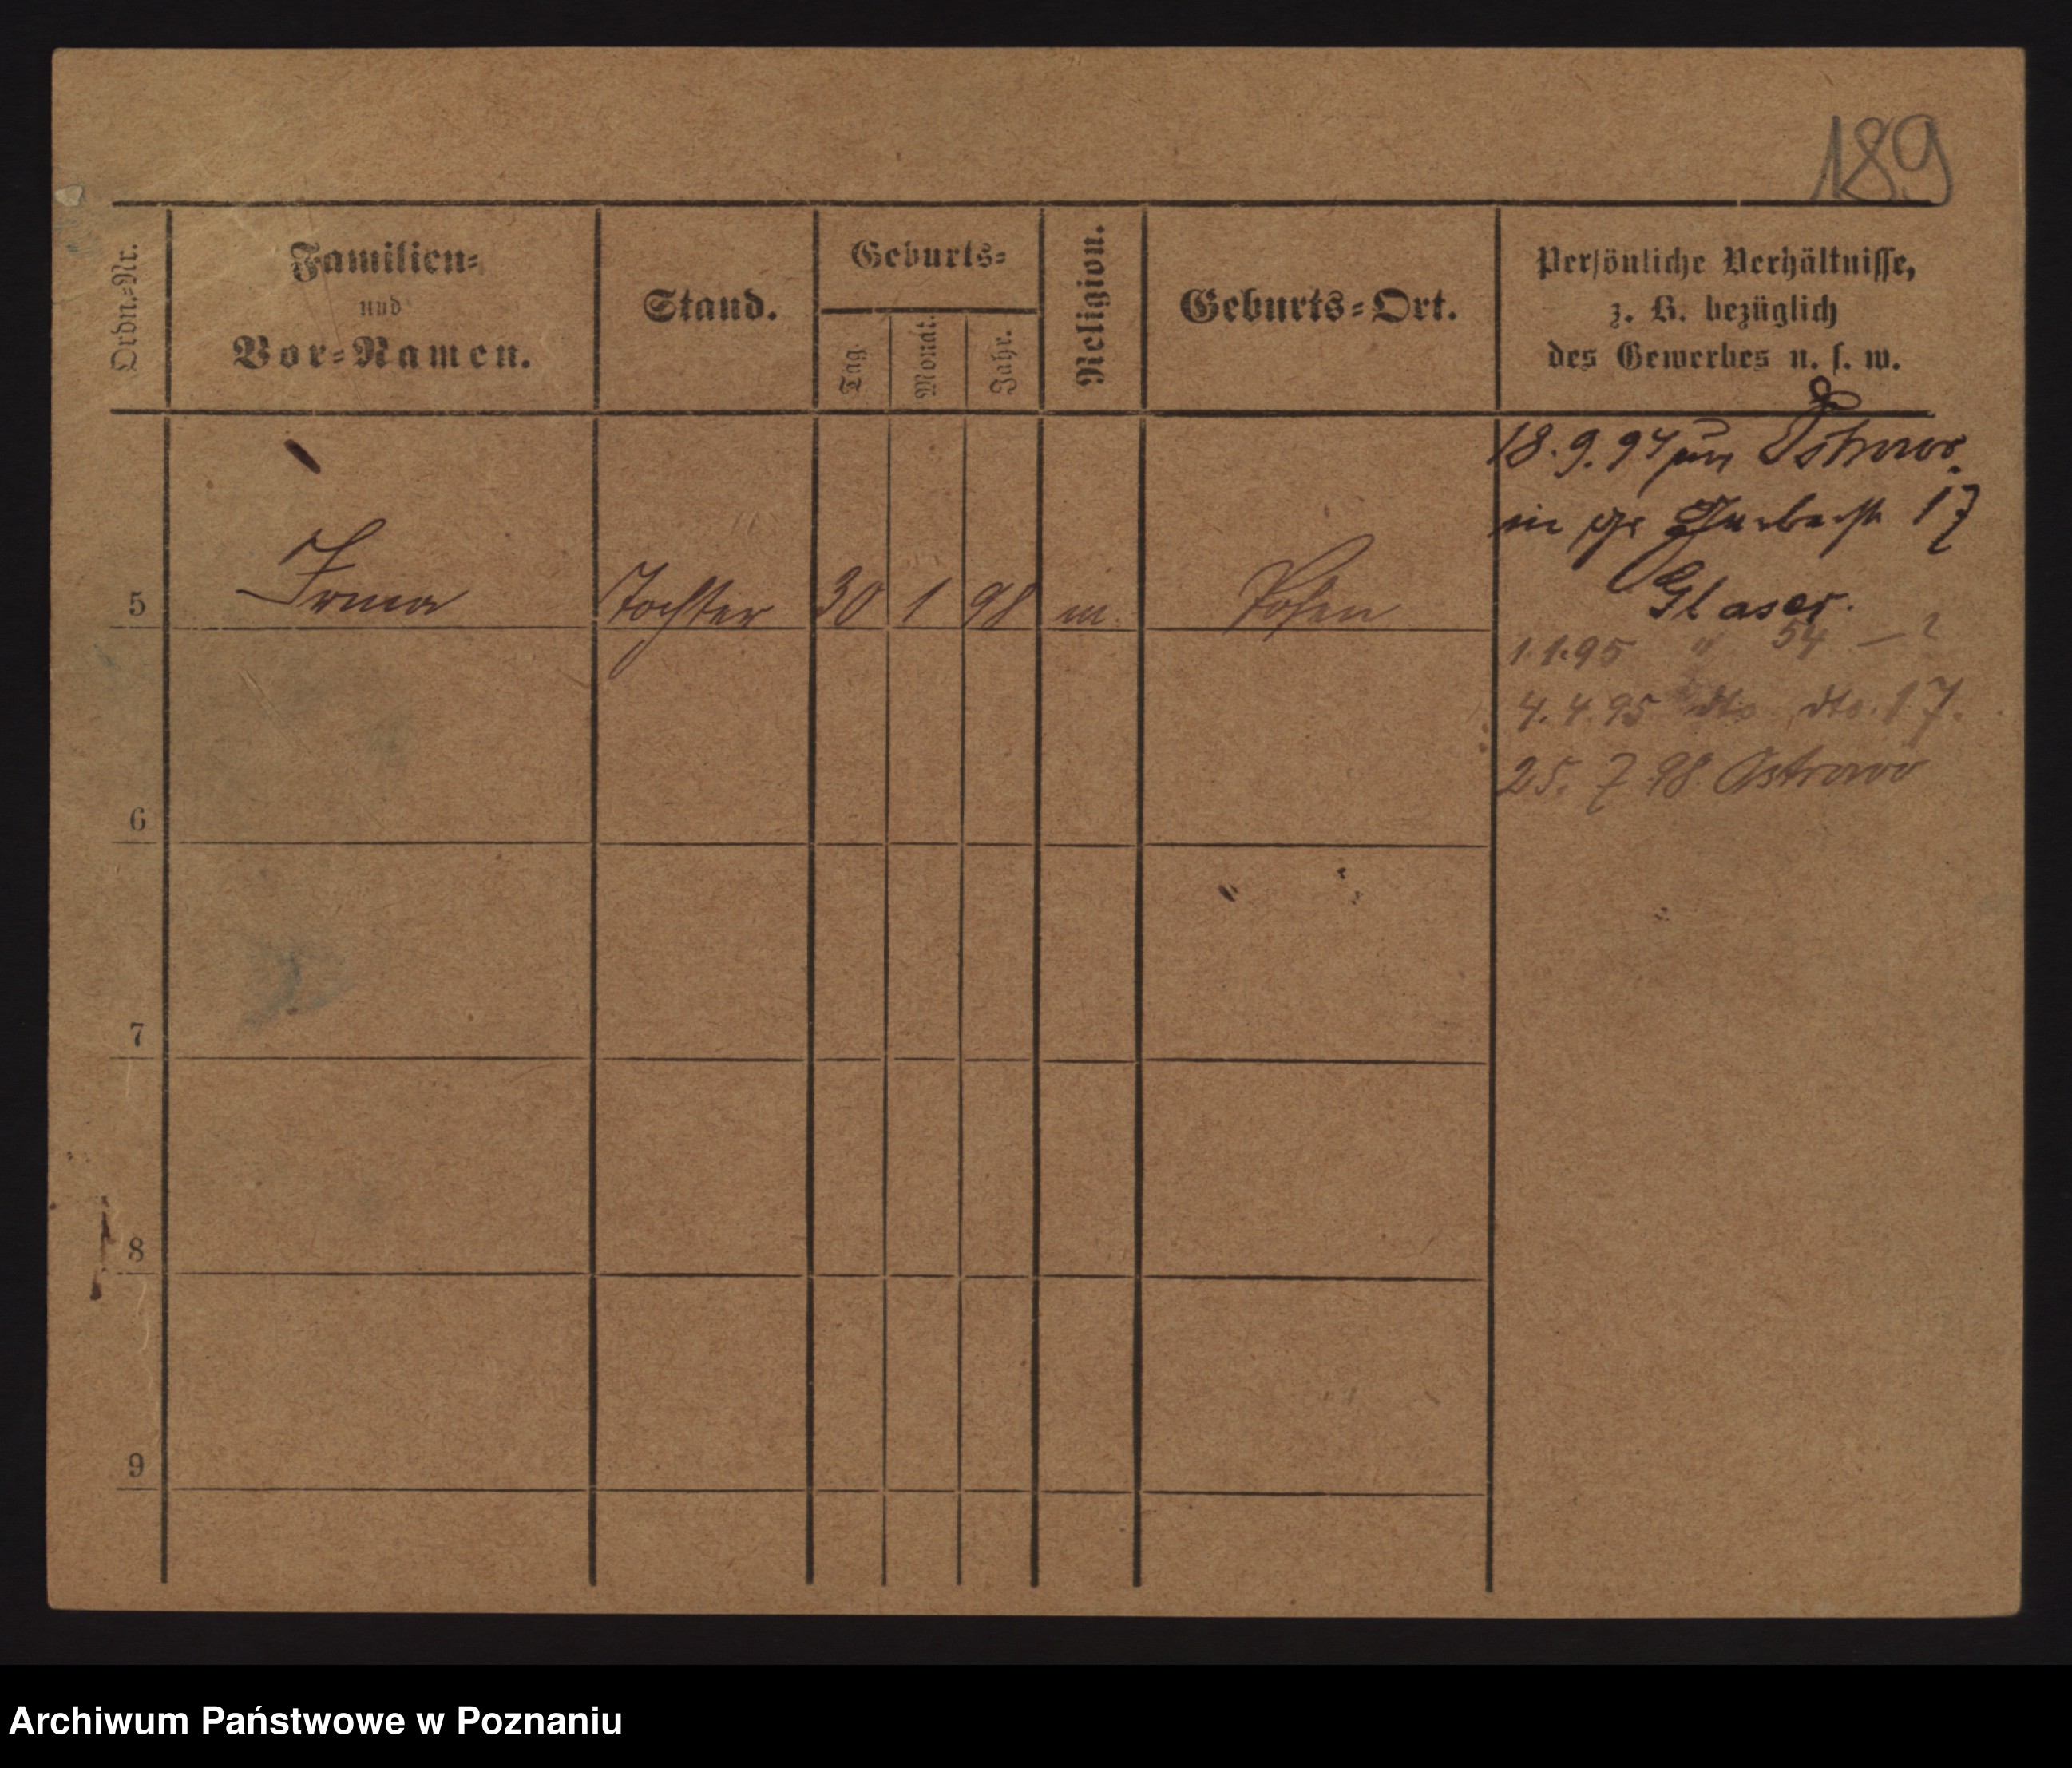 189
Ordn.-Nr.
Familien-
und
Vor-Namen.
Stand.
Geburts-
Tag.
Monat.
Jahr.
Religion.
Geburts-Ort.
Persönliche Verhältnisse,
z. B. bezüglich
des Gewerbes u. s. w.
18.9.94 von Ostrowo.
in gr Gerberstr 17
Glaser.
5 Irma Tochter 30 1 98 m. Posen
1.1.95 " 54 — ?
4.4.95 dto dto. 17.
25. 7 98. Ostrowo
6
7
8
9
Archiwum Państwowe w Poznaniu